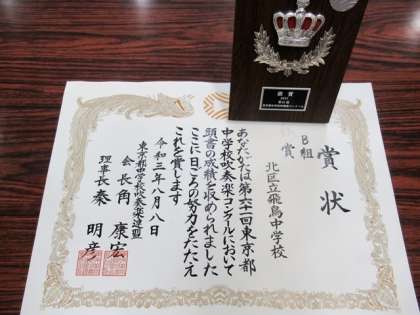 賞状
B組
賞
北区立飛鳥中学校
あなたがたは第六一回東京都
中学校吹奏楽コンクールにおいて
頭書の成績を収められました
ここに日ごろの努力をたたえ
これを賞します
令和三年八月八日
東京都中学校吹奏楽連盟
会長 角 康宏
理事長 秦 明彦